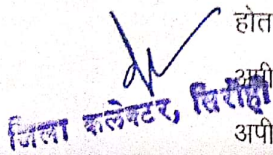 होत
अपी
जिला कलेक्टर, सिरोही
अपी